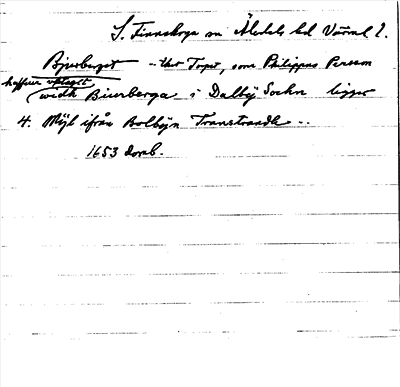 S. Finnskoga sn Älvdals hd Värml.
Bjurberget - Uthi Torpet, som Philippus Persson
haffuer uptagit
widh Biurberga i Dalby Sochn ligger
4. Mijl ifrån Bolbÿn Transtrandh -..
1653 domb.